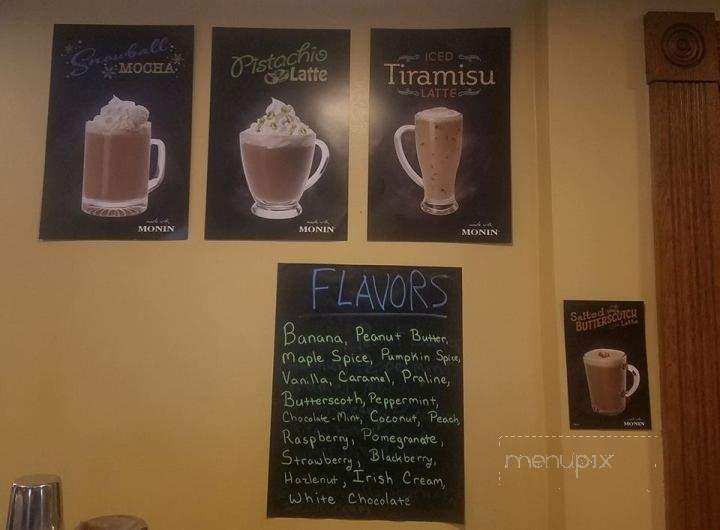 Snowball
MOCHA
made with
MONIN
Pistachio
Latte
made with
MONIN
ICED
Tiramisu
LATTE
made with
MONIN
FLAVORS
Banana, Peanut Butter,
Maple Spice, Pumpkin Spice,
Vanilla, Caramel, Praline,
Butterscoth, Peppermint,
Chocolate-Mint, Coconut, Peach,
Raspberry, Pomegranate,
Strawberry, Blackberry,
Hazlenut, Irish Cream,
White Chocolate
Salted
BUTTERSCOTCH
Latte
MONIN
menupix